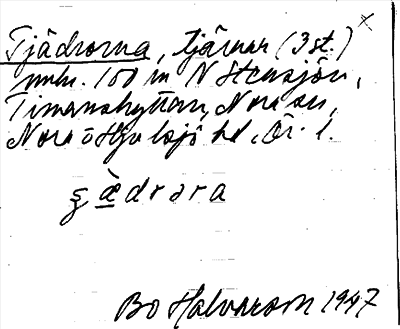 Tjädrorna, tjärnar (3 st.) x
mlr. 100 m N Stensjön,
Timanshyttan, Nora sn,
Nora o Hjulsjö hd, Ör. l.
ʂæ̀drɘra
Bo Halvarson 1947